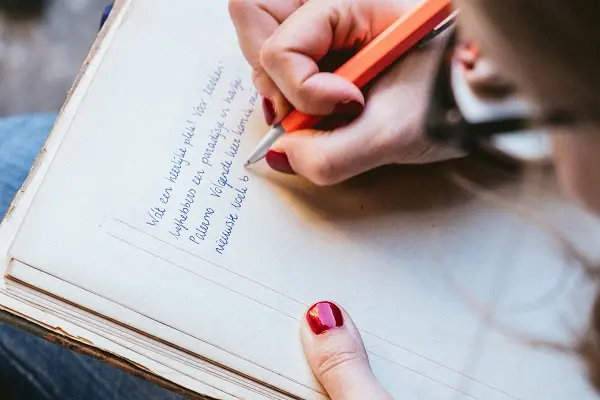 Wat een heerlijke plek! Voor boeken
liefhebbers een paradijs in hartje
Palermo. Volgende keer kom ik mijn
nieuwste boek b